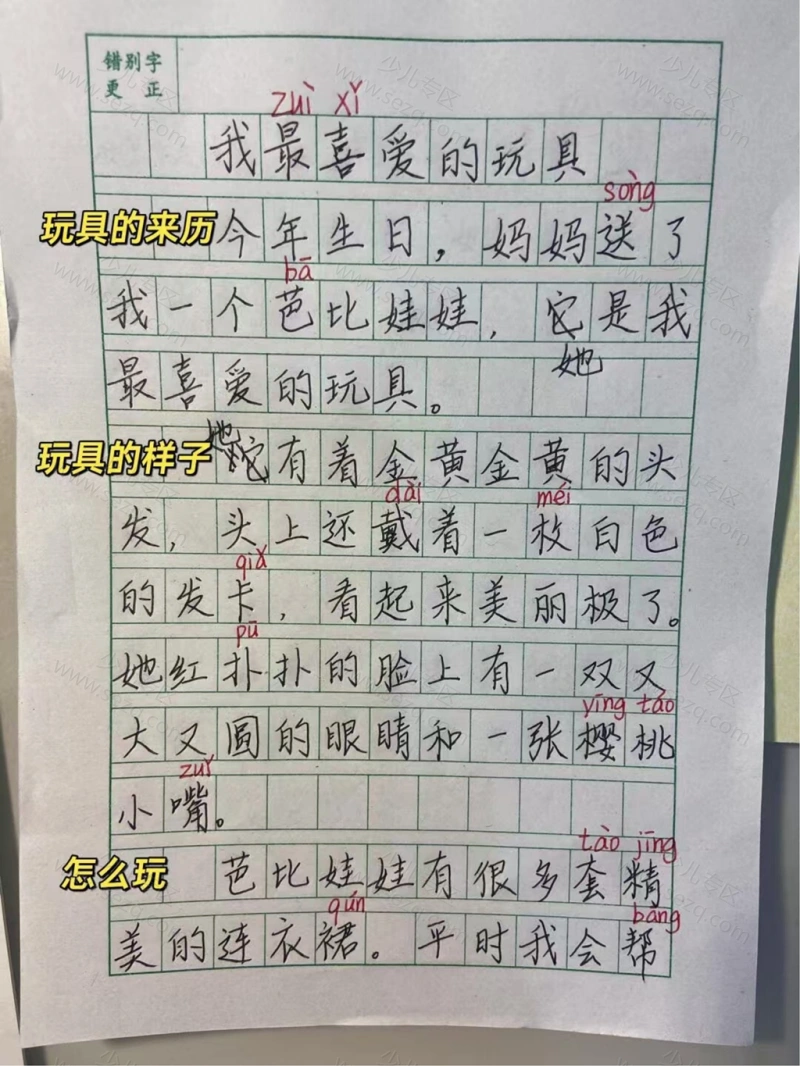 错别字
更 正
zuì xǐ
我最喜爱的玩具
sòng
玩具的来历
今年生日，妈妈送了
bā
我一个芭比娃娃，它是我
她
最喜爱的玩具。
玩具的样子
她
它有着金黄金黄的头
dài méi
发，头上还戴着一枚白色
qiǎ
的发卡，看起来美丽极了。
pū
她红扑扑的脸上有一双又
yīng táo
大又圆的眼睛和一张樱桃
zuǐ
小嘴。
tào jīng
怎么玩
芭比娃娃有很多套精
qún bāng
美的连衣裙。平时我会帮
少儿专区
www.sezq.com